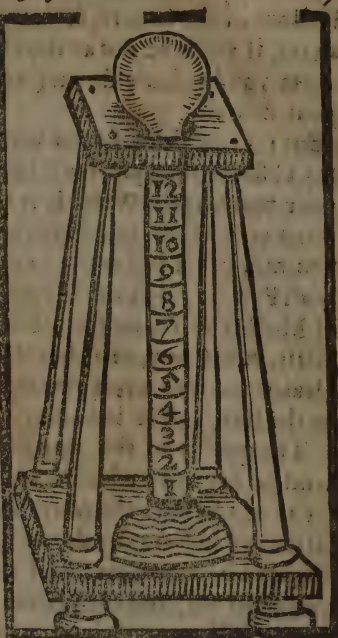 12
11
10
9
8
7
6
5
4
3
2
1